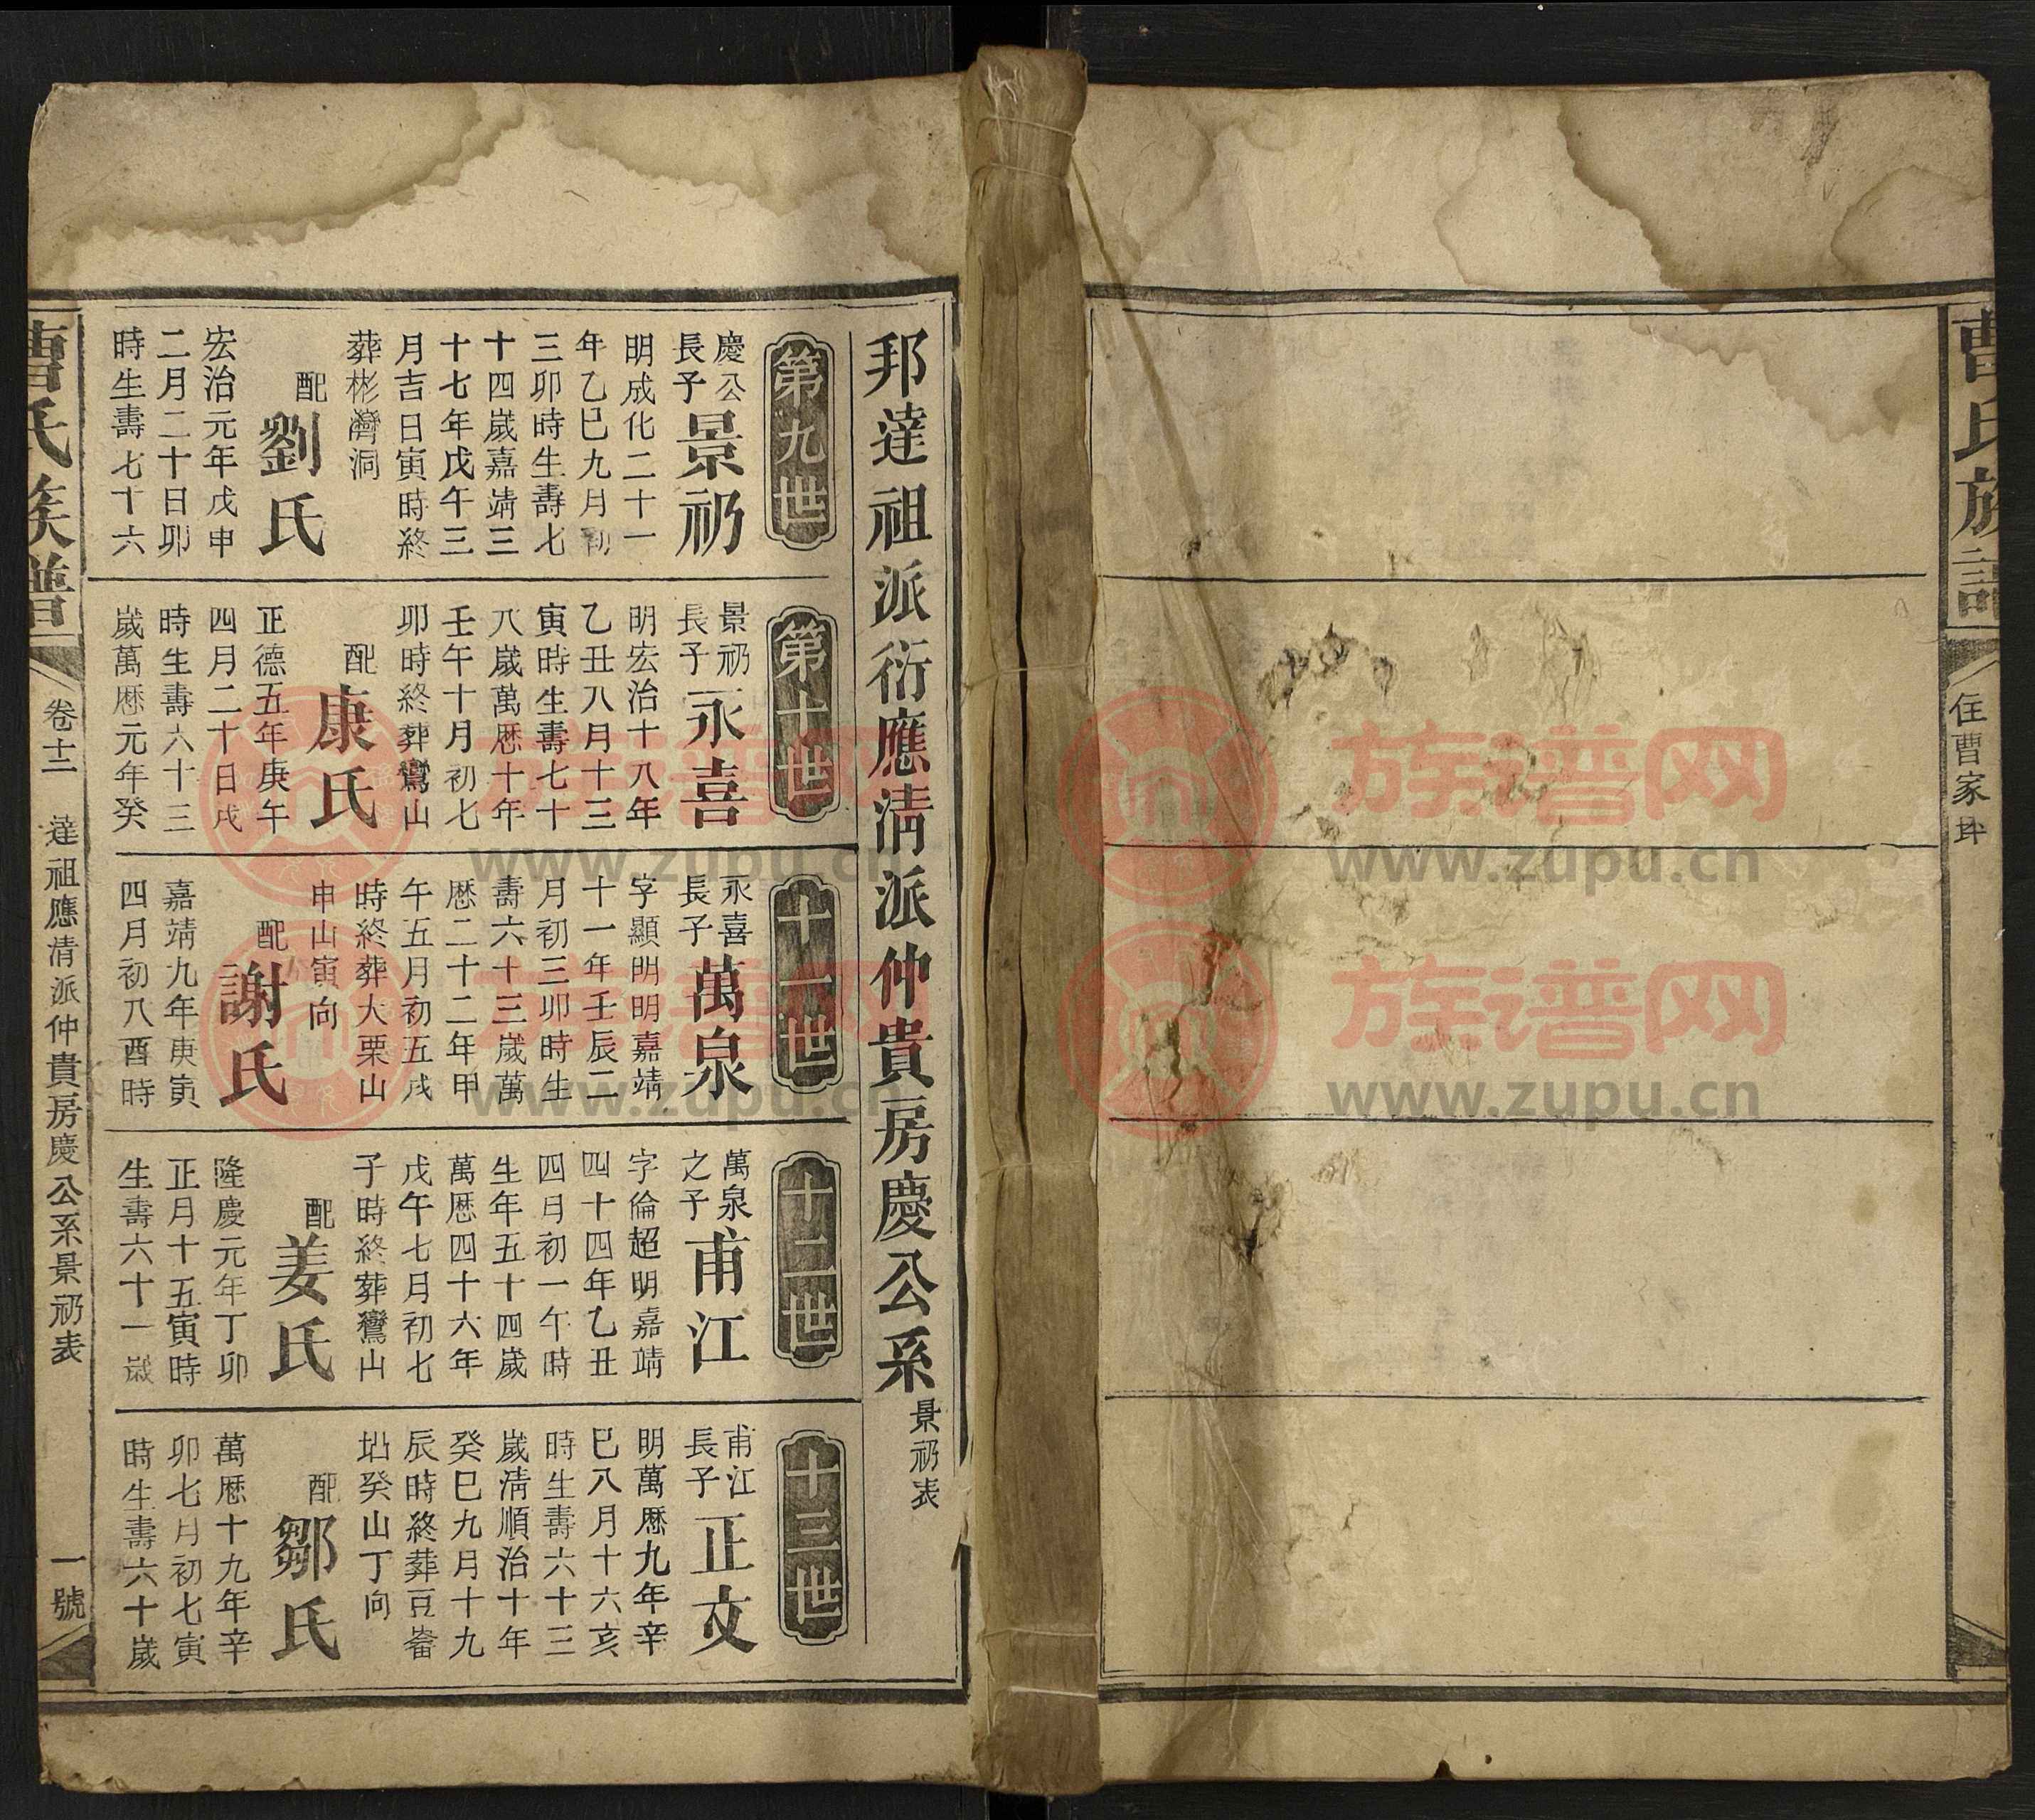 曹氏族譜
住曹家坪
邦達祖派衍應清派仲貴房慶公系
景礽表
第九世
慶公
長子
景礽
明成化二十一
年乙巳九月初
三卯時生壽七
十四歲嘉靖三
十七年戊午三
月吉日寅時終
葬彬灣洞
配
劉氏
宏治元年戊申
二月二十日卯
時生壽七十六
第十世
景礽
長子
永喜
明宏治十八年
乙丑八月十三
寅時生壽七十
八歲萬歷十年
壬午十月初七
卯時終葬鸞山
配
康氏
正德五年庚午
四月二十日戌
時生壽六十三
歲萬歷元年癸
十一世
永喜
長子
萬泉
字顯明明嘉靖
十一年壬辰二
月初三卯時生
壽六十三歲萬
歷二十二年甲
午五月初五戌
時終葬大栗山
申山寅向
配
謝氏
嘉靖九年庚寅
四月初八酉時
十二世
萬泉
之子
甫江
字倫超明嘉靖
四十四年乙丑
四月初一午時
生年五十四歲
萬歷四十六年
戊午七月初七
子時終葬鸞山
配
姜氏
隆慶元年丁卯
正月十五寅時
生壽六十一歲
十三世
甫江
長子
正文
明萬歷九年辛
巳八月十六亥
時生壽六十三
歲清順治十年
癸巳九月十九
辰時終葬豆崙
坫癸山丁向
配
鄒氏
萬歷十九年辛
卯七月初七寅
時生壽六十歲
曹氏族譜
卷十二
達祖應清派仲貴房慶公系景礽表
一號
族谱网
www.zupu.cn
族谱网
www.zupu.cn
族谱网
www.zupu.cn
族谱网
www.zupu.cn